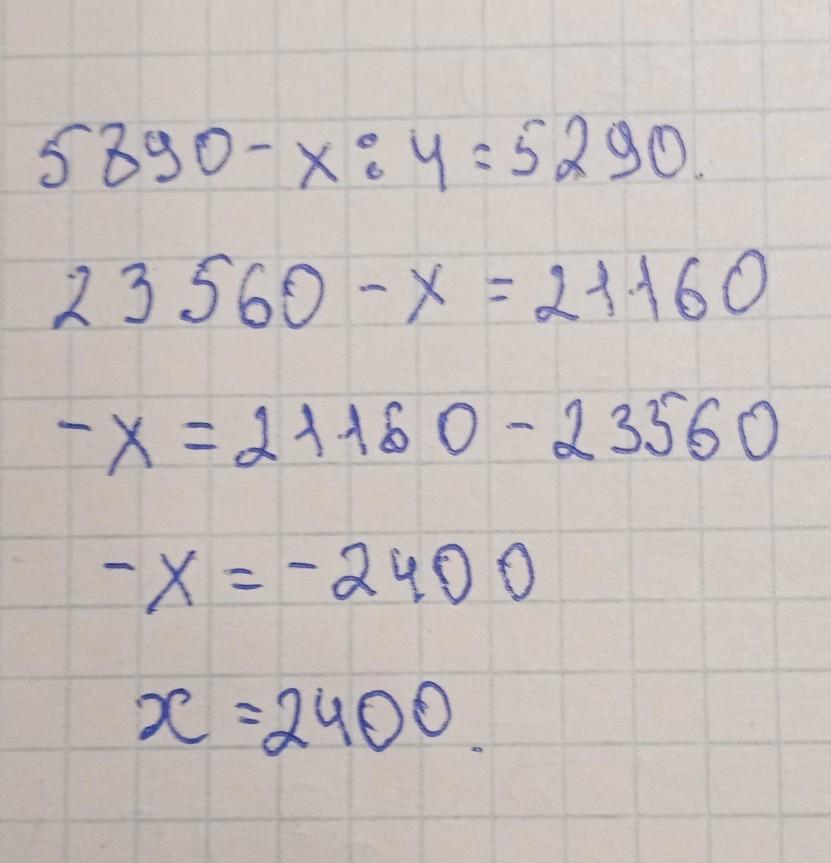 5890 - x : 4 = 5290.
23560 - x = 21160
-x = 21160 - 23560
-x = -2400
x = 2400.